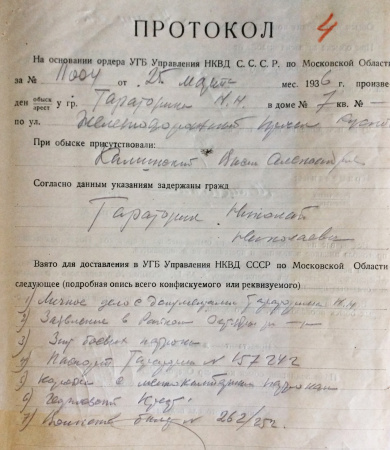 ПРОТОКОЛ
4
На основании ордера УГБ Управления НКВД С. С. С. Р. по Московской Области
за № от 25 марта мес. 1936 г. произве
ден обыск арест у гр. Тараторина Н.Н. в доме № 7 кв. № —
по ул. Железнодорожный
При обыске присутствовали:
Калинский
Согласно данным указаниям задержаны гражд
Тараторин Николай
Николаевич
Взято для доставления в УГБ Управления НКВД СССР по Московской Области
следующее (подробная опись всего конфискуемого или реквизуемого)
1) Личное дело с документами Тараторина Н.Н.
2) Заявление в Райком
3) боевых патрона
4) Паспорт Тараторин № 157242
5) Коробка с мелкокалиберн патронами
6)
7) билет № 262/252.